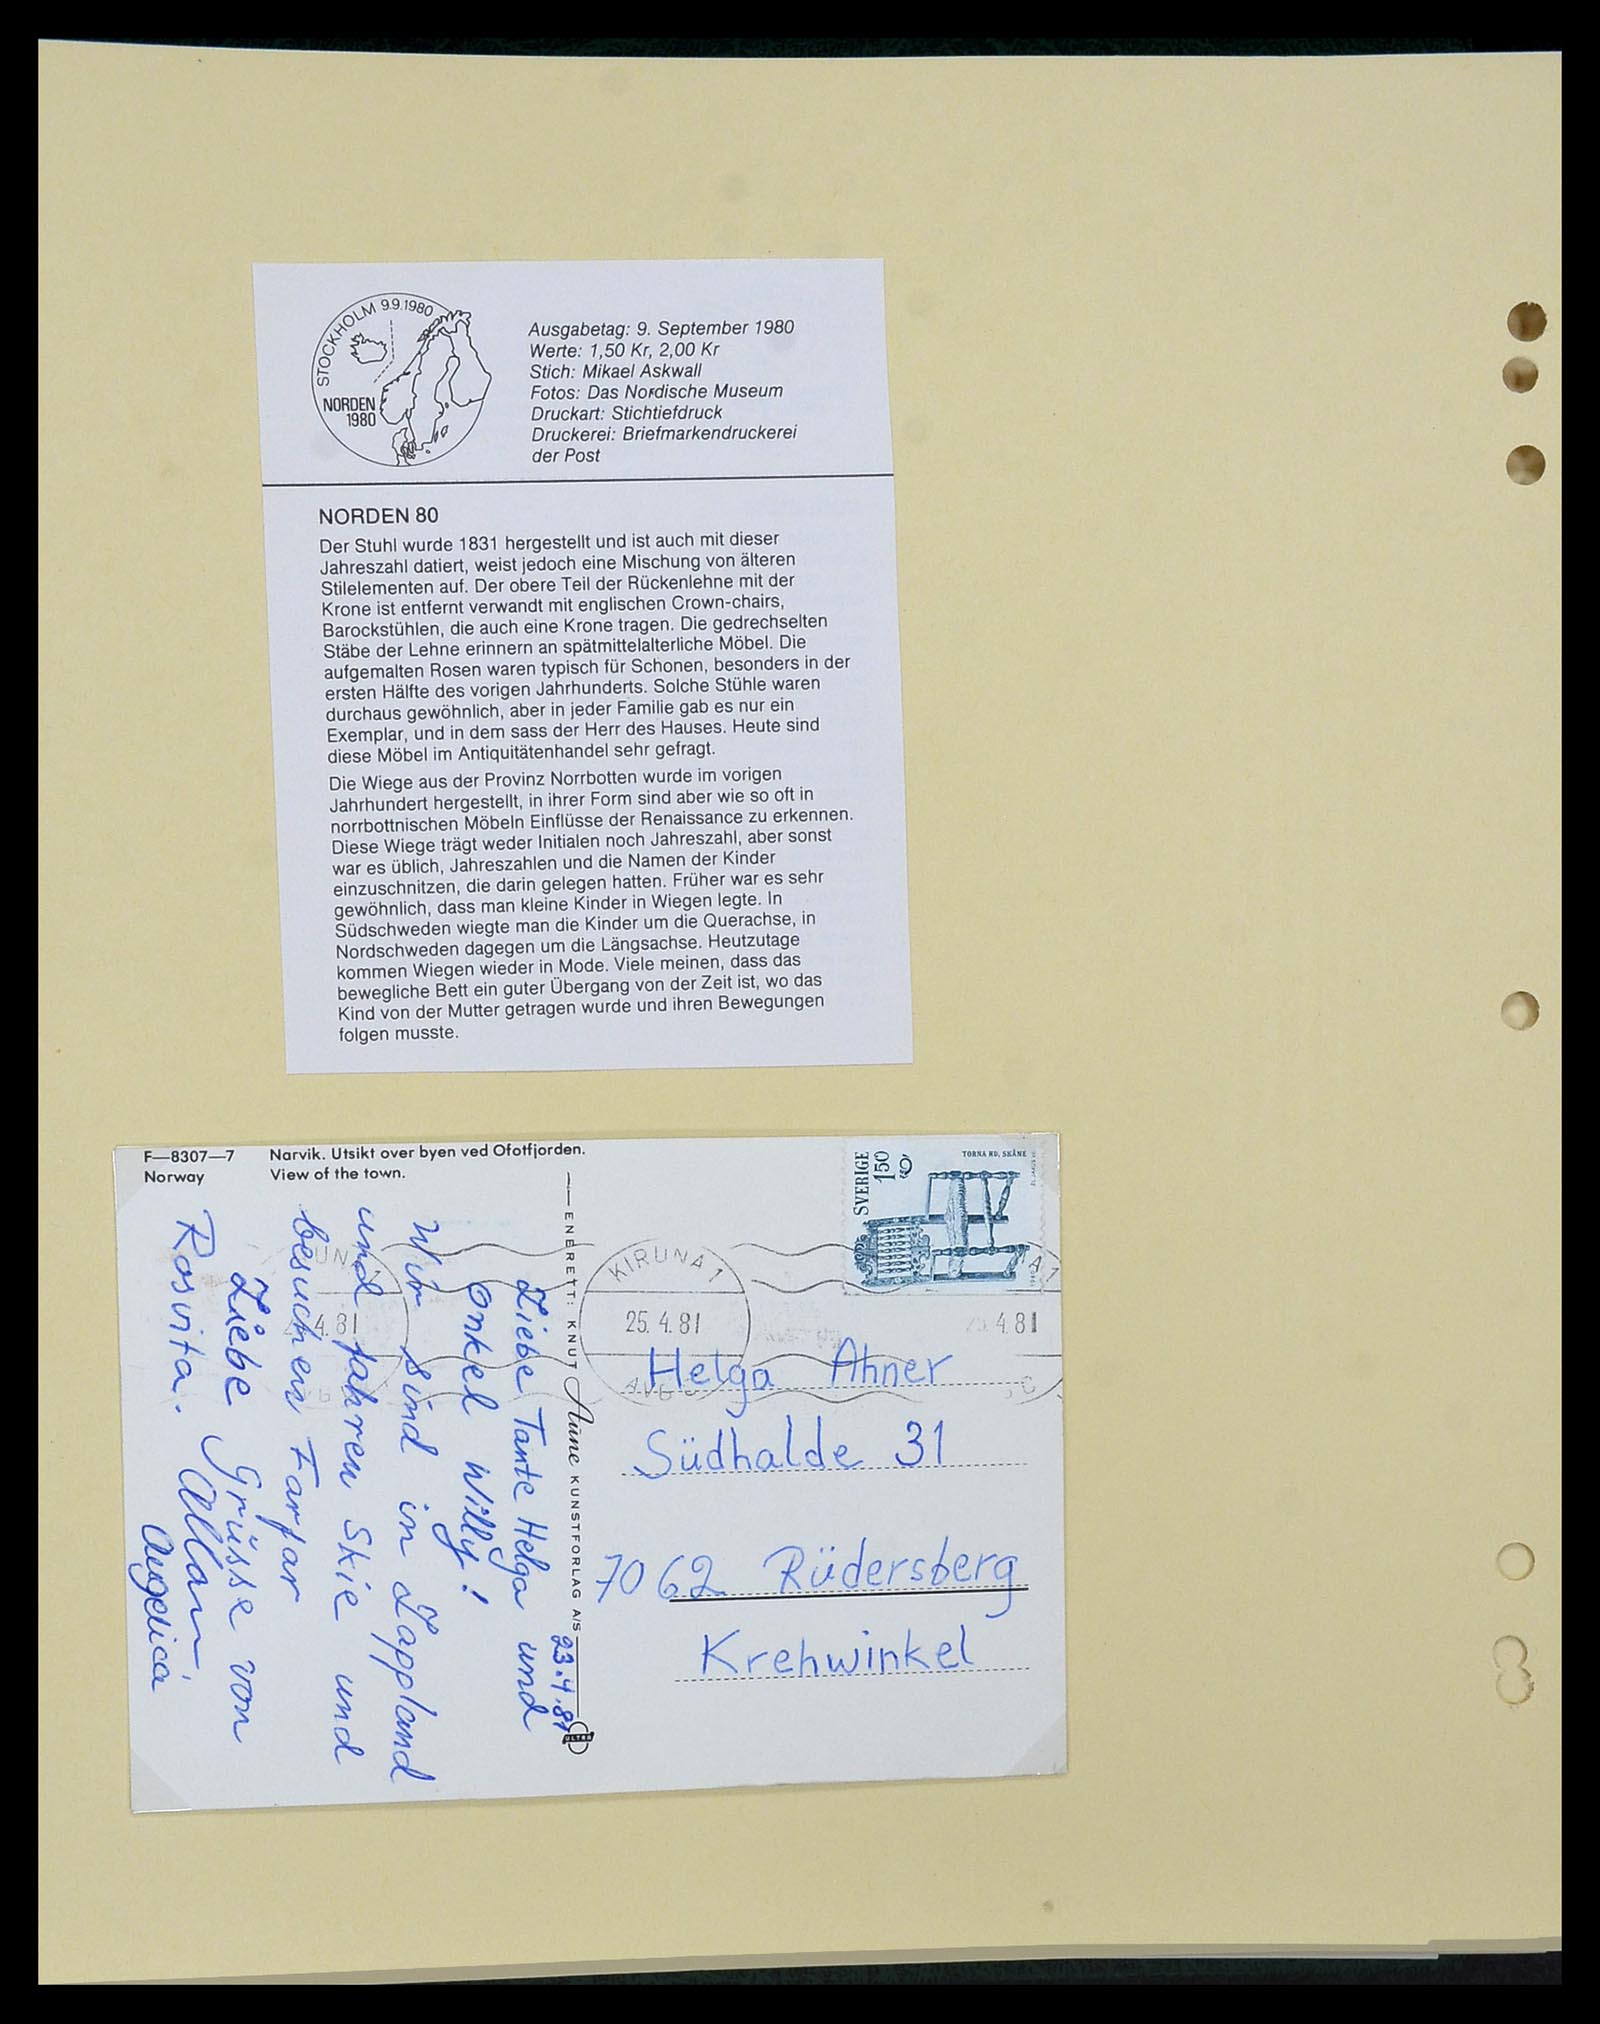 STOCKHOLM 9.9.1980
NORDEN
1980
Ausgabetag: 9. September 1980
Werte: 1,50 Kr, 2,00 Kr
Stich: Mikael Askwall
Fotos: Das Nordische Museum
Druckart: Stichtiefdruck
Druckerei: Briefmarkendruckerei
der Post
NORDEN 80
Der Stuhl wurde 1831 hergestellt und ist auch mit dieser
Jahreszahl datiert, weist jedoch eine Mischung von älteren
Stilelementen auf. Der obere Teil der Rückenlehne mit der
Krone ist entfernt verwandt mit englischen Crown-chairs,
Barockstühlen, die auch eine Krone tragen. Die gedrechselten
Stäbe der Lehne erinnern an spätmittelalterliche Möbel. Die
aufgemalten Rosen waren typisch für Schonen, besonders in der
ersten Hälfte des vorigen Jahrhunderts. Solche Stühle waren
durchaus gewöhnlich, aber in jeder Familie gab es nur ein
Exemplar, und in dem sass der Herr des Hauses. Heute sind
diese Möbel im Antiquitätenhandel sehr gefragt.
Die Wiege aus der Provinz Norrbotten wurde im vorigen
Jahrhundert hergestellt, in ihrer Form sind aber wie so oft in
norrbottnischen Möbeln Einflüsse der Renaissance zu erkennen.
Diese Wiege trägt weder Initialen noch Jahreszahl, aber sonst
war es üblich, Jahreszahlen und die Namen der Kinder
einzuschnitzen, die darin gelegen hatten. Früher war es sehr
gewöhnlich, dass man kleine Kinder in Wiegen legte. In
Südschweden wiegte man die Kinder um die Querachse, in
Nordschweden dagegen um die Längsachse. Heutzutage
kommen Wiegen wieder in Mode. Viele meinen, dass das
bewegliche Bett ein guter Übergang von der Zeit ist, wo das
Kind von der Mutter getragen wurde und ihren Bewegungen
folgen musste.
F—8307—7 Narvik. Utsikt over byen ved Ofotfjorden.
Norway View of the town.
23.4.81
Liebe Tante Helga und
Onkel Willy!
Wir sind in Lappland
und fahren Skie und
besuchen Farfar
Liebe Grüsse von
Rosvita. Allan
Angelica
ENERETT: KNUT Aune KUNSTFORLAG A/S
ULTRA
SVERIGE
150
TORNA HD, SKÅNE
KIRUNA 1
25.4.81
AVG
A 1
4.81
Helga Ahner
Südhalde 31
7062 Rüdersberg
Krehwinkel